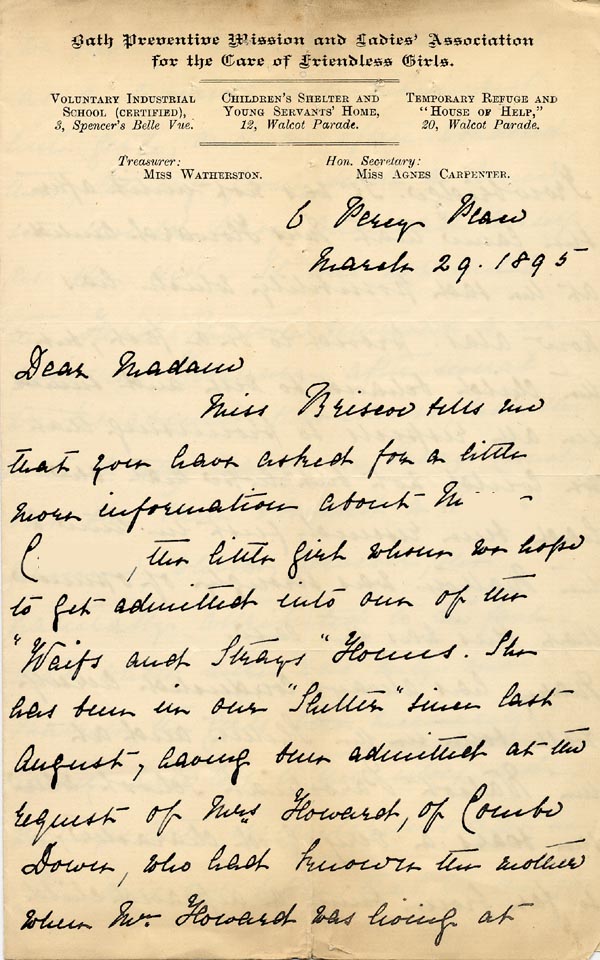 Bath Preventive Mission and Ladies' Association
for the Care of Friendless Girls.
VOLUNTARY INDUSTRIAL
SCHOOL (CERTIFIED),
3, Spencer's Belle Vue.
CHILDREN'S SHELTER AND
YOUNG SERVANTS' HOME,
12, Walcot Parade.
TEMPORARY REFUGE AND
"HOUSE OF HELP,"
20, Walcot Parade.
Treasurer:
MISS WATHERSTON.
Hon. Secretary:
MISS AGNES CARPENTER.
6 Percy Place
March 29. 1895
Dear Madam
Miss Briscoe tells me
that you have asked for a little
more information about M
C , the little girl whom we hope
to get admitted into one of the
"Waifs and Strays" Homes. She
has been in our "Shelter" since last
August, having been admitted at the
request of Mrs Howard, of Combe
Down, who had known the mother
when Mrs Howard was living at